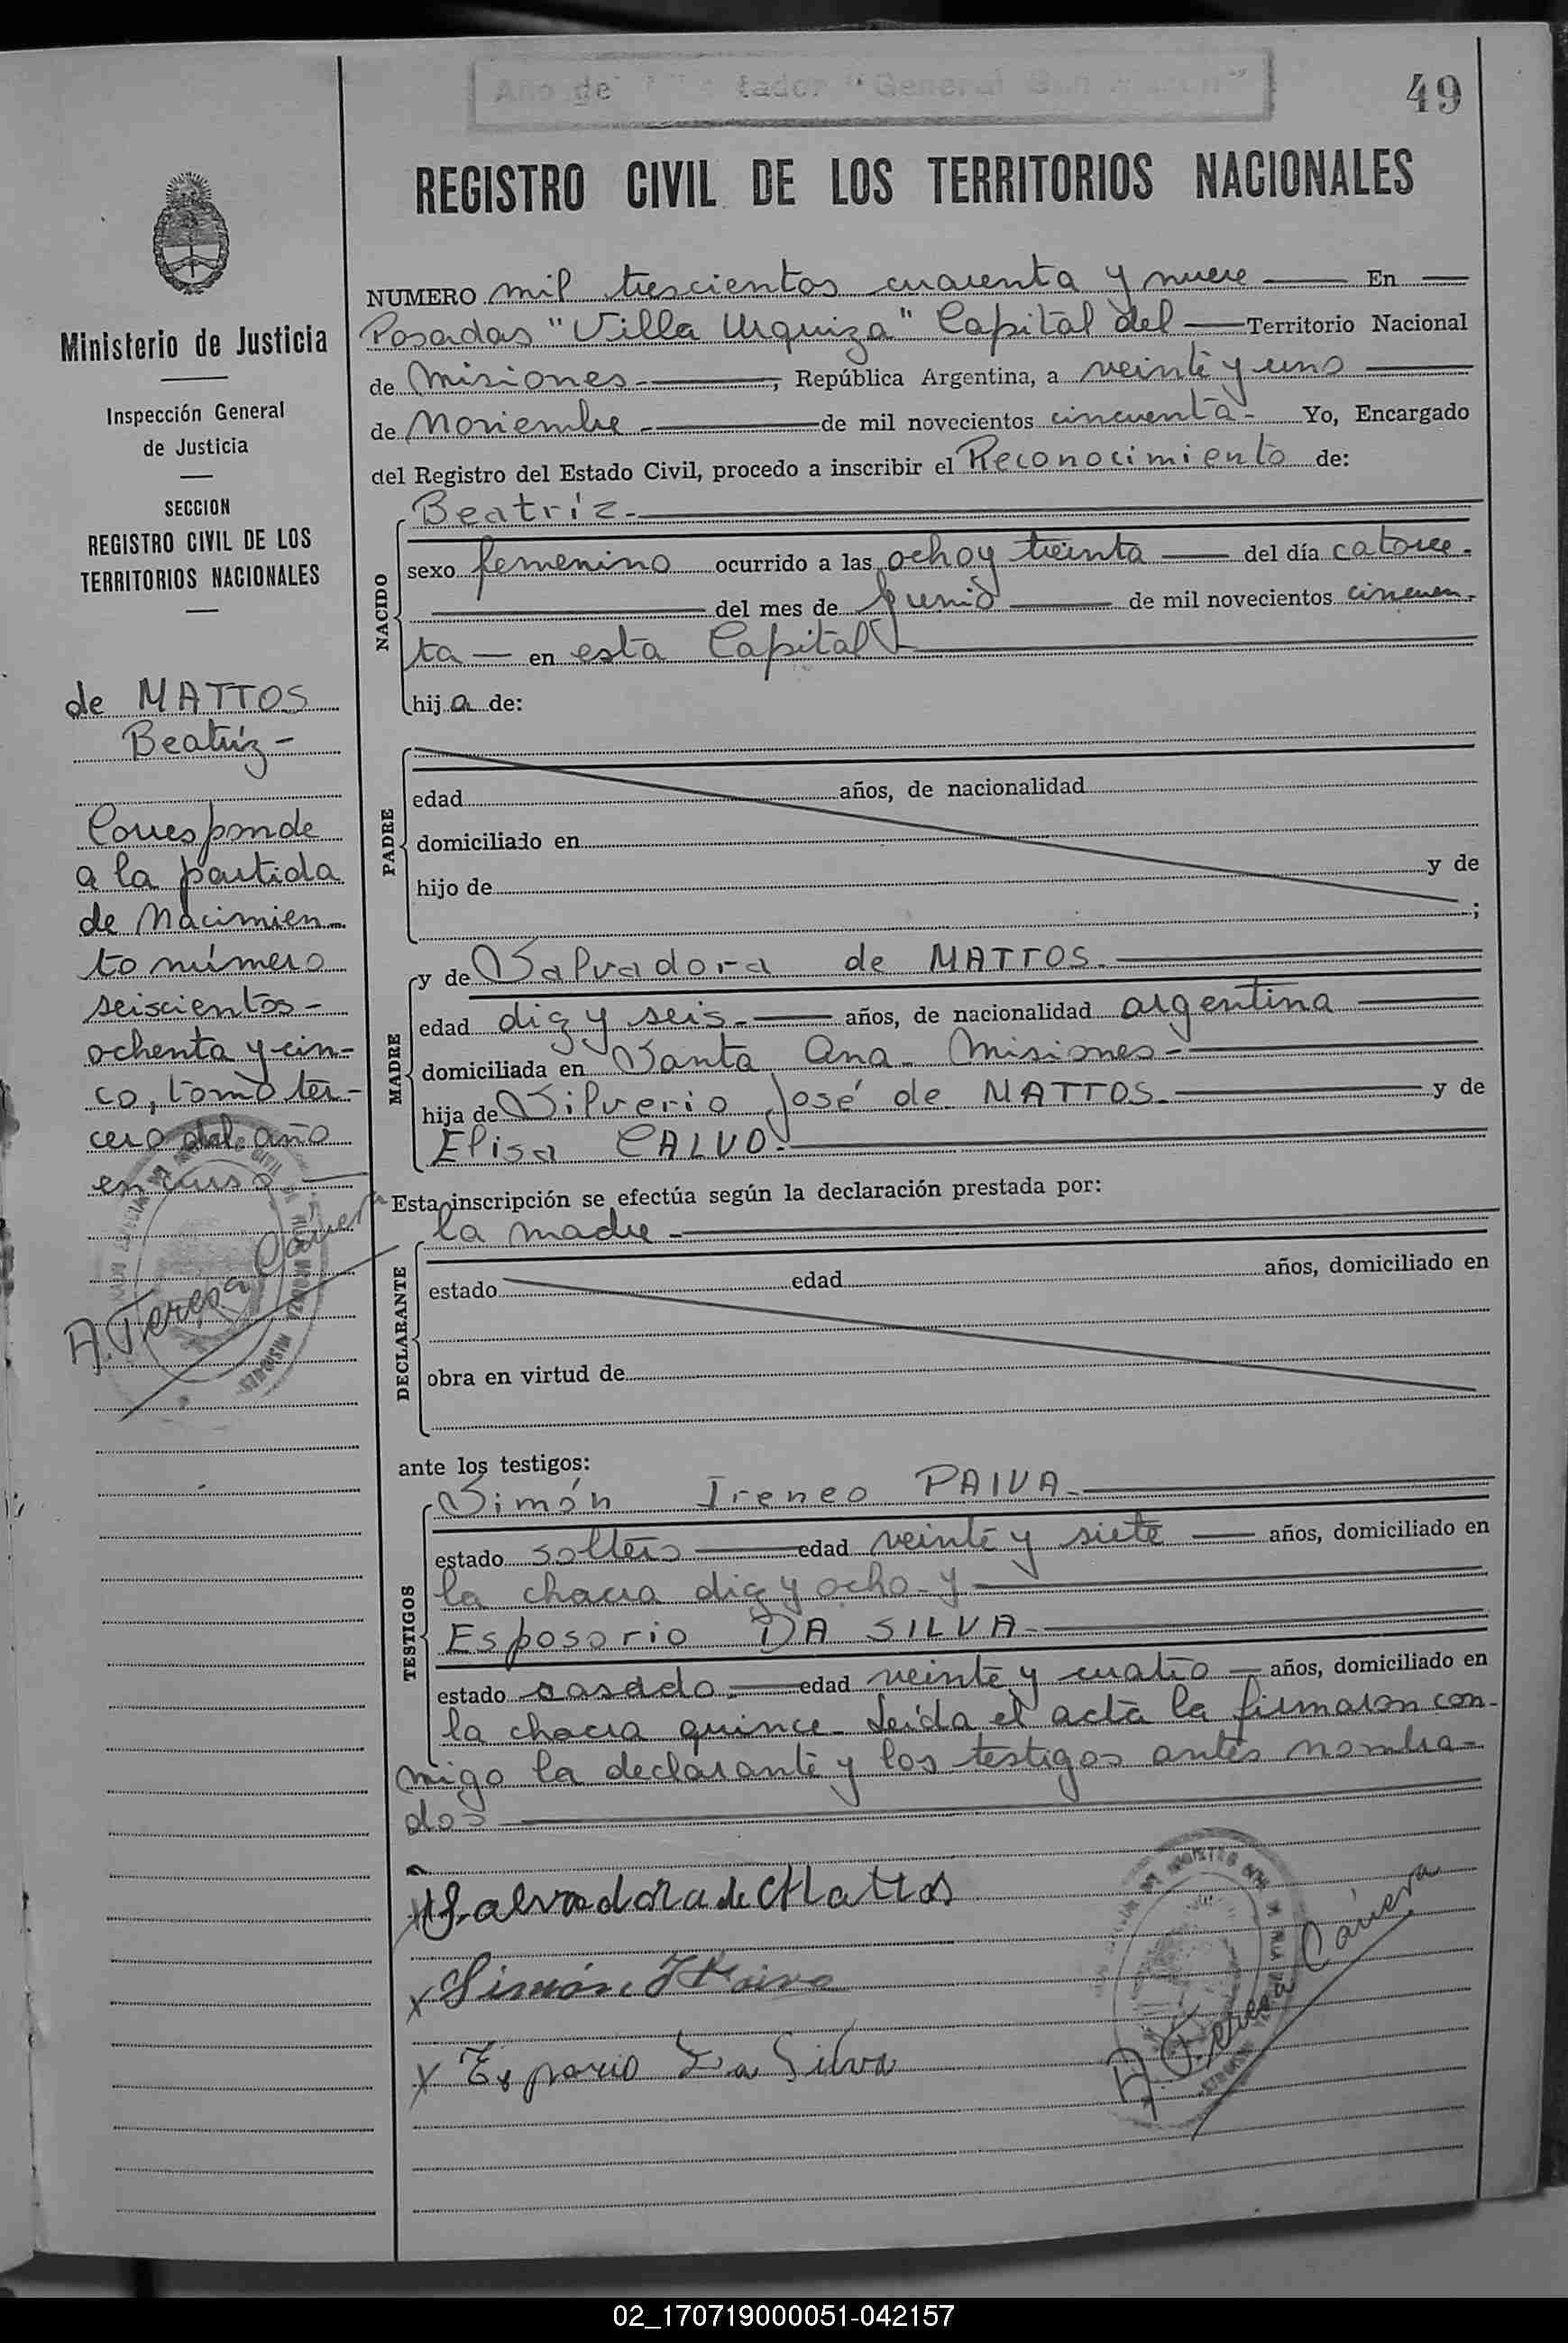 Año de tador "General San
49
REGISTRO CIVIL DE LOS TERRITORIOS NACIONALES
Ministerio de Justicia
Inspección General
de Justicia
SECCION
REGISTRO CIVIL DE LOS
TERRITORIOS NACIONALES
de MATTOS
Beatríz -
Corresponde
a la partida
de Nacimien-
to número
seiscientos -
ochenta y cin-
co, tomo ter-
cero del año
en curso
A. Teresa
NUMERO mil trescientos cuarenta y nueve En
Posadas "Villa Urquiza" Capital del Territorio Nacional
de Misiones.-, República Argentina, a veinte y uno
de Noviembre.- de mil novecientos cincuenta.- Yo, Encargado
del Registro del Estado Civil, procedo a inscribir el Reconocimiento de:
NACIDO
Beatríz.-
sexo femenino ocurrido a las ocho y treinta del día catorce.-
del mes de Junio de mil novecientos cincuen-
ta - en esta Capital.-
hija de:
PADRE
edad años, de nacionalidad
domiciliado en
hijo de y de
;
MADRE
y de Salvadora de MATTOS.-
edad diez y seis.- años, de nacionalidad argentina
domiciliada en Santa Ana - Misiones.-
hija de Silverio José de MATTOS.- y de
Elisa CALVO.-
Esta inscripción se efectúa según la declaración prestada por:
DECLARANTE
la madre.-
estado edad años, domiciliado en
obra en virtud de
ante los testigos:
TESTIGOS
Simón Ireneo PAIVA.-
estado soltero edad veinte y siete años, domiciliado en
la chacra diez y ocho - y
Esposorio DA SILVA.-
estado casado.- edad veinte y cuatro años, domiciliado en
la chacra quince. Leída el acta la firmaron con-
migo la declarante y los testigos antes nombra-
dos
Salvadora de Mattos
x Simón I Paiva
x Esporio Da Silva
A. Teresa
02_170719000051-042157